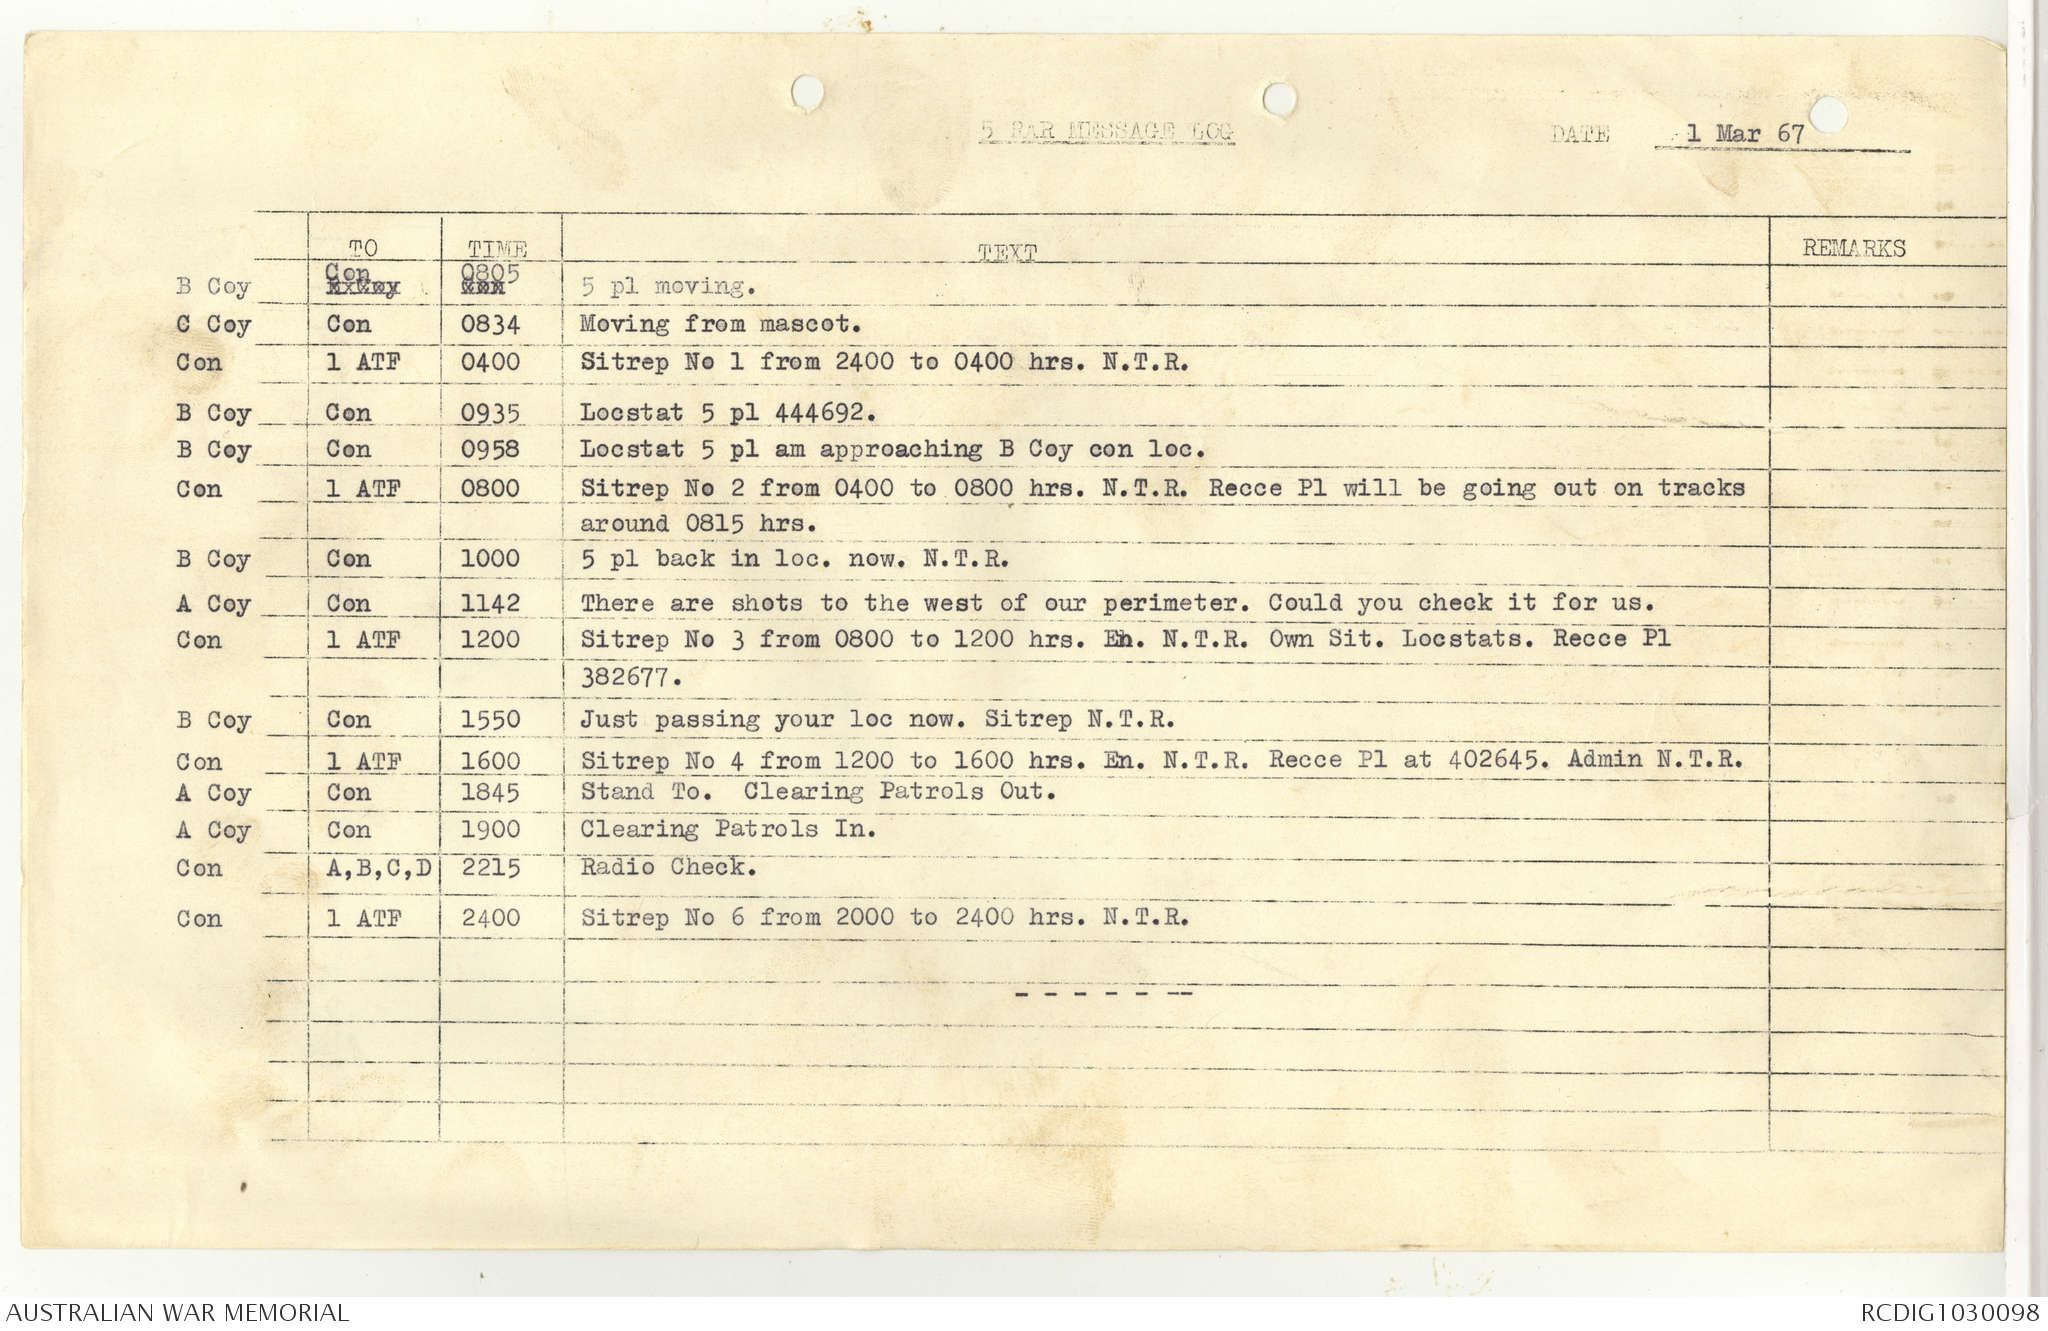 5 RAR MESSAGE LOG DATE 1 Mar 67
TO TIME TEXT REMARKS
B Coy Con 0805 5 pl moving.
C Coy Con 0834 Moving from mascot.
Con 1 ATF 0400 Sitrep No 1 from 2400 to 0400 hrs. N.T.R.
B Coy Con 0935 Locstat 5 pl 444692.
B Coy Con 0958 Locstat 5 pl am approaching B Coy con loc.
Con 1 ATF 0800 Sitrep No 2 from 0400 to 0800 hrs. N.T.R. Recce Pl will be going out on tracks
around 0815 hrs.
B Coy Con 1000 5 pl back in loc. now. N.T.R.
A Coy Con 1142 There are shots to the west of our perimeter. Could you check it for us.
Con 1 ATF 1200 Sitrep No 3 from 0800 to 1200 hrs. En. N.T.R. Own Sit. Locstats. Recce Pl
382677.
B Coy Con 1550 Just passing your loc now. Sitrep N.T.R.
Con 1 ATF 1600 Sitrep No 4 from 1200 to 1600 hrs. En. N.T.R. Recce Pl at 402645. Admin N.T.R.
A Coy Con 1845 Stand To. Clearing Patrols Out.
A Coy Con 1900 Clearing Patrols In.
Con A,B,C,D 2215 Radio Check.
Con 1 ATF 2400 Sitrep No 6 from 2000 to 2400 hrs. N.T.R.
- - - - - --
AUSTRALIAN WAR MEMORIAL RCDIG1030098